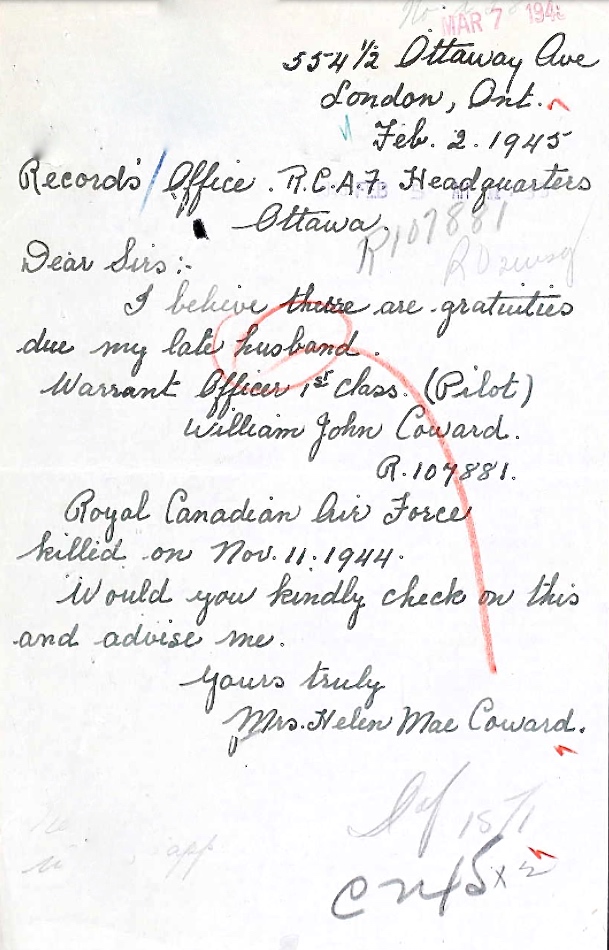 MAR 7 194
554 1/2 Ottaway Ave
London, Ont.
Feb. 2. 1945
Records' Office. R.C.A.F. Headquarters
Ottawa.
R107881
Dear Sirs:-
I believe there are gratuities
due my late husband.
Warrant Officer 1st Class. (Pilot)
William John Coward.
R.107881.
Royal Canadian Air Force
killed on Nov. 11. 1944.
Would you kindly check on this
and advise me.
Yours truly
Mrs. Helen Mae Coward.